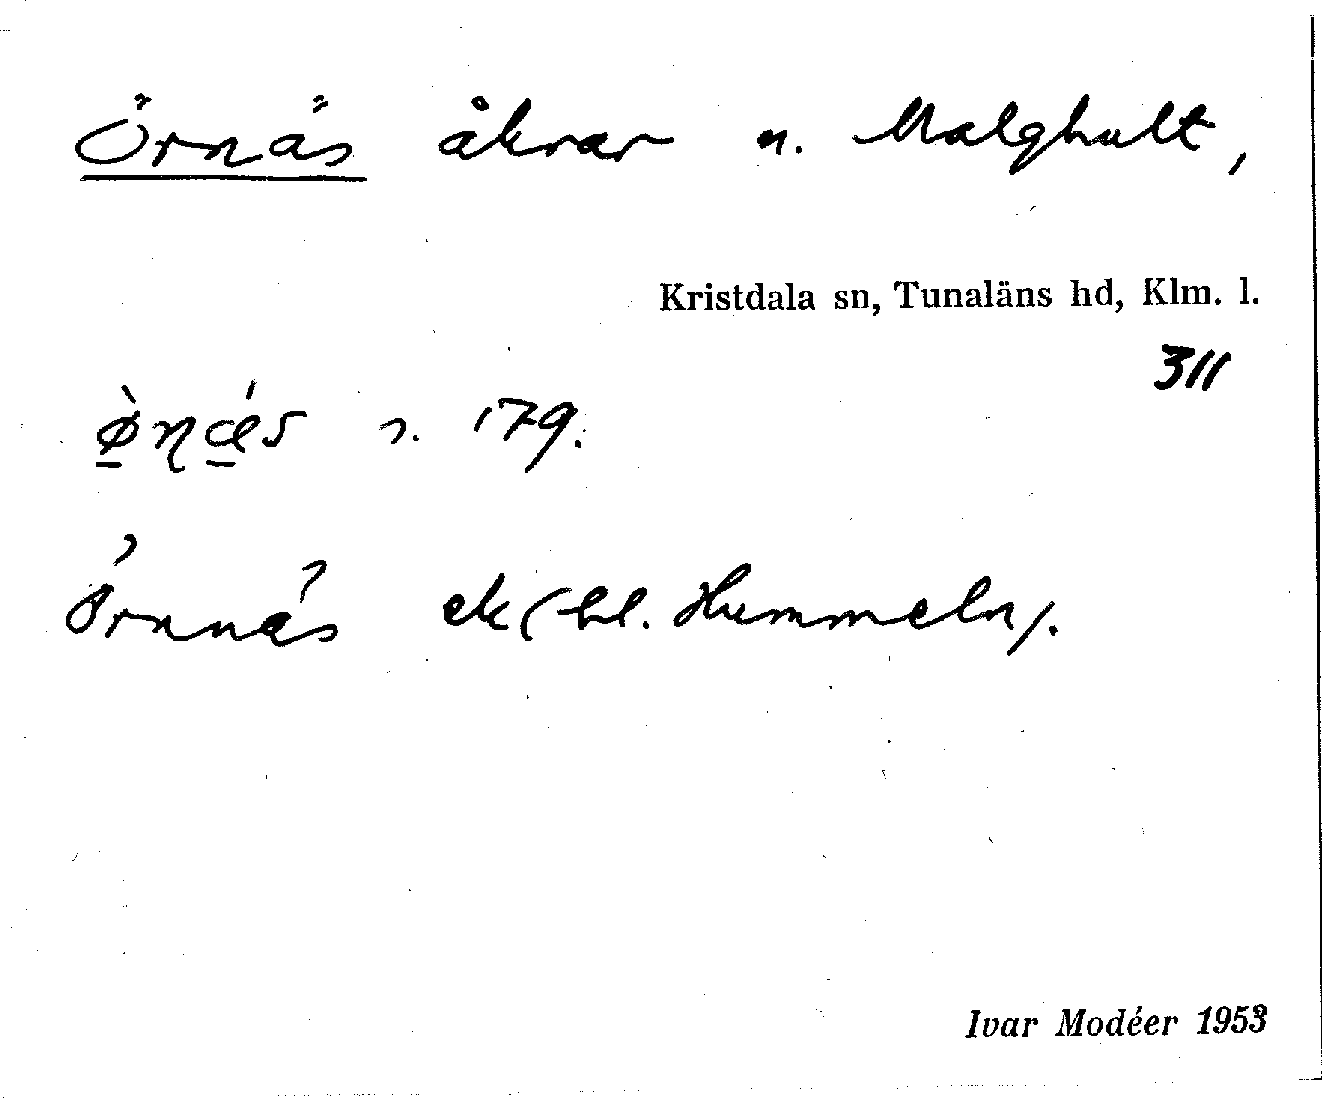 Örnäs åkrar n. Malghult,
Kristdala sn, Tunaläns hd, Klm. l.
311
179.
Örnnäs ek (bl. Hummeln).
Ivar Modéer 1953